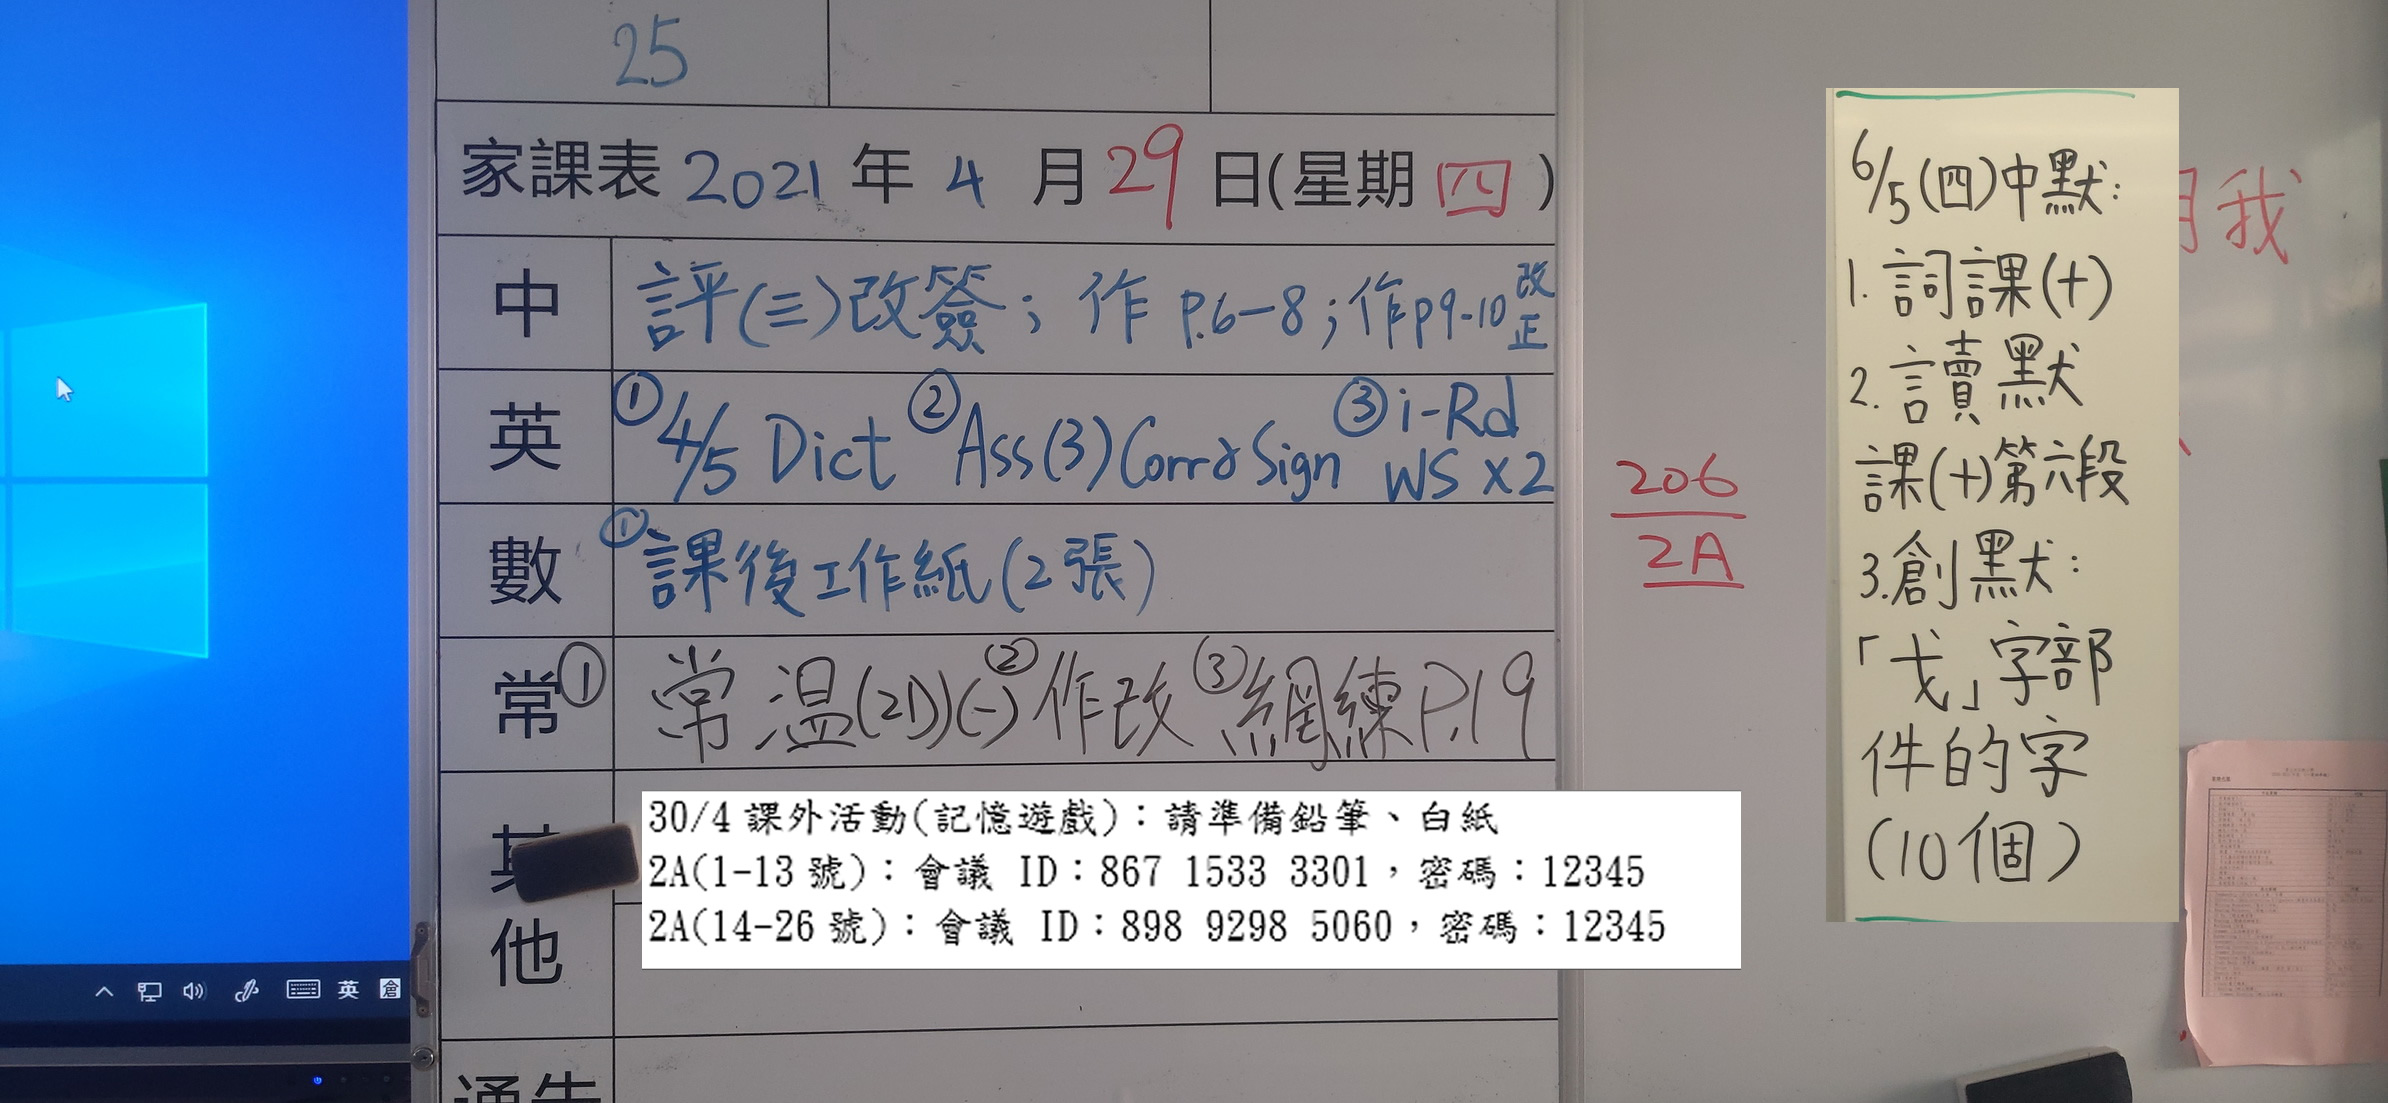 25
家課表 2021 年 4 月 29 日(星期 四)
中 評(三)改簽；作 P.6-8；作p9-10 改正
英 ①4/5 Dict ②Ass(3) Corr & Sign ③i-Rd WS x2
數 ①課後工作紙(2張)
常 ①常溫(2D)(一) ②作改 ③網練P.19
其他
30/4 課外活動(記憶遊戲)：請準備鉛筆、白紙
2A(1-13 號)：會議 ID：867 1533 3301，密碼：12345
2A(14-26 號)：會議 ID：898 9298 5060，密碼：12345
通告
英 倉
206
2A
6/5(四)中默：
1. 詞課(十)
2. 讀默
課(十)第六段
3.創默：
「戈」字部
件的字
(10個)
我